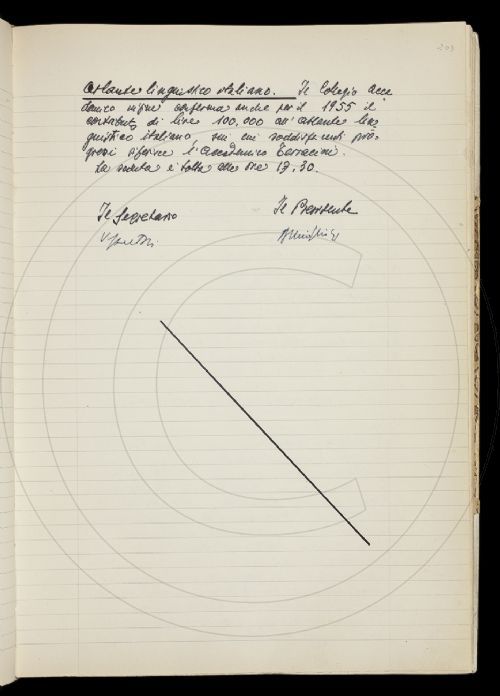 203
Atlante linguistico italiano. Il Collegio Acca
demico infine conferma anche per il 1955 il
contributo di lire 100.000 all'Atlante lin
guistico italiano, sui cui soddisfacenti pro-
gressi riferisce l'Accademico Terracini.
La seduta è tolta alle ore 17,30.
Il Segretario Il Presidente